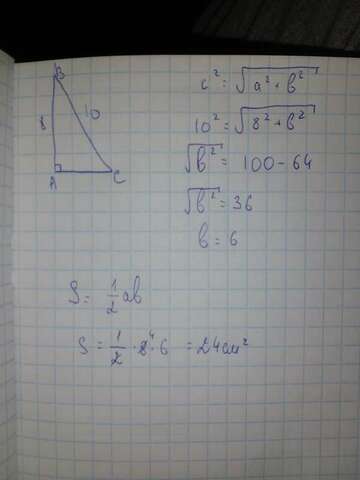 B
8
10
A
C
c² = √a² + b²
10² = √8² + b²
√b² = 100 - 64
√b² = 36
b = 6
S = 1/2 ab
S = 1/2 · 8⁴ · 6 = 24 см²